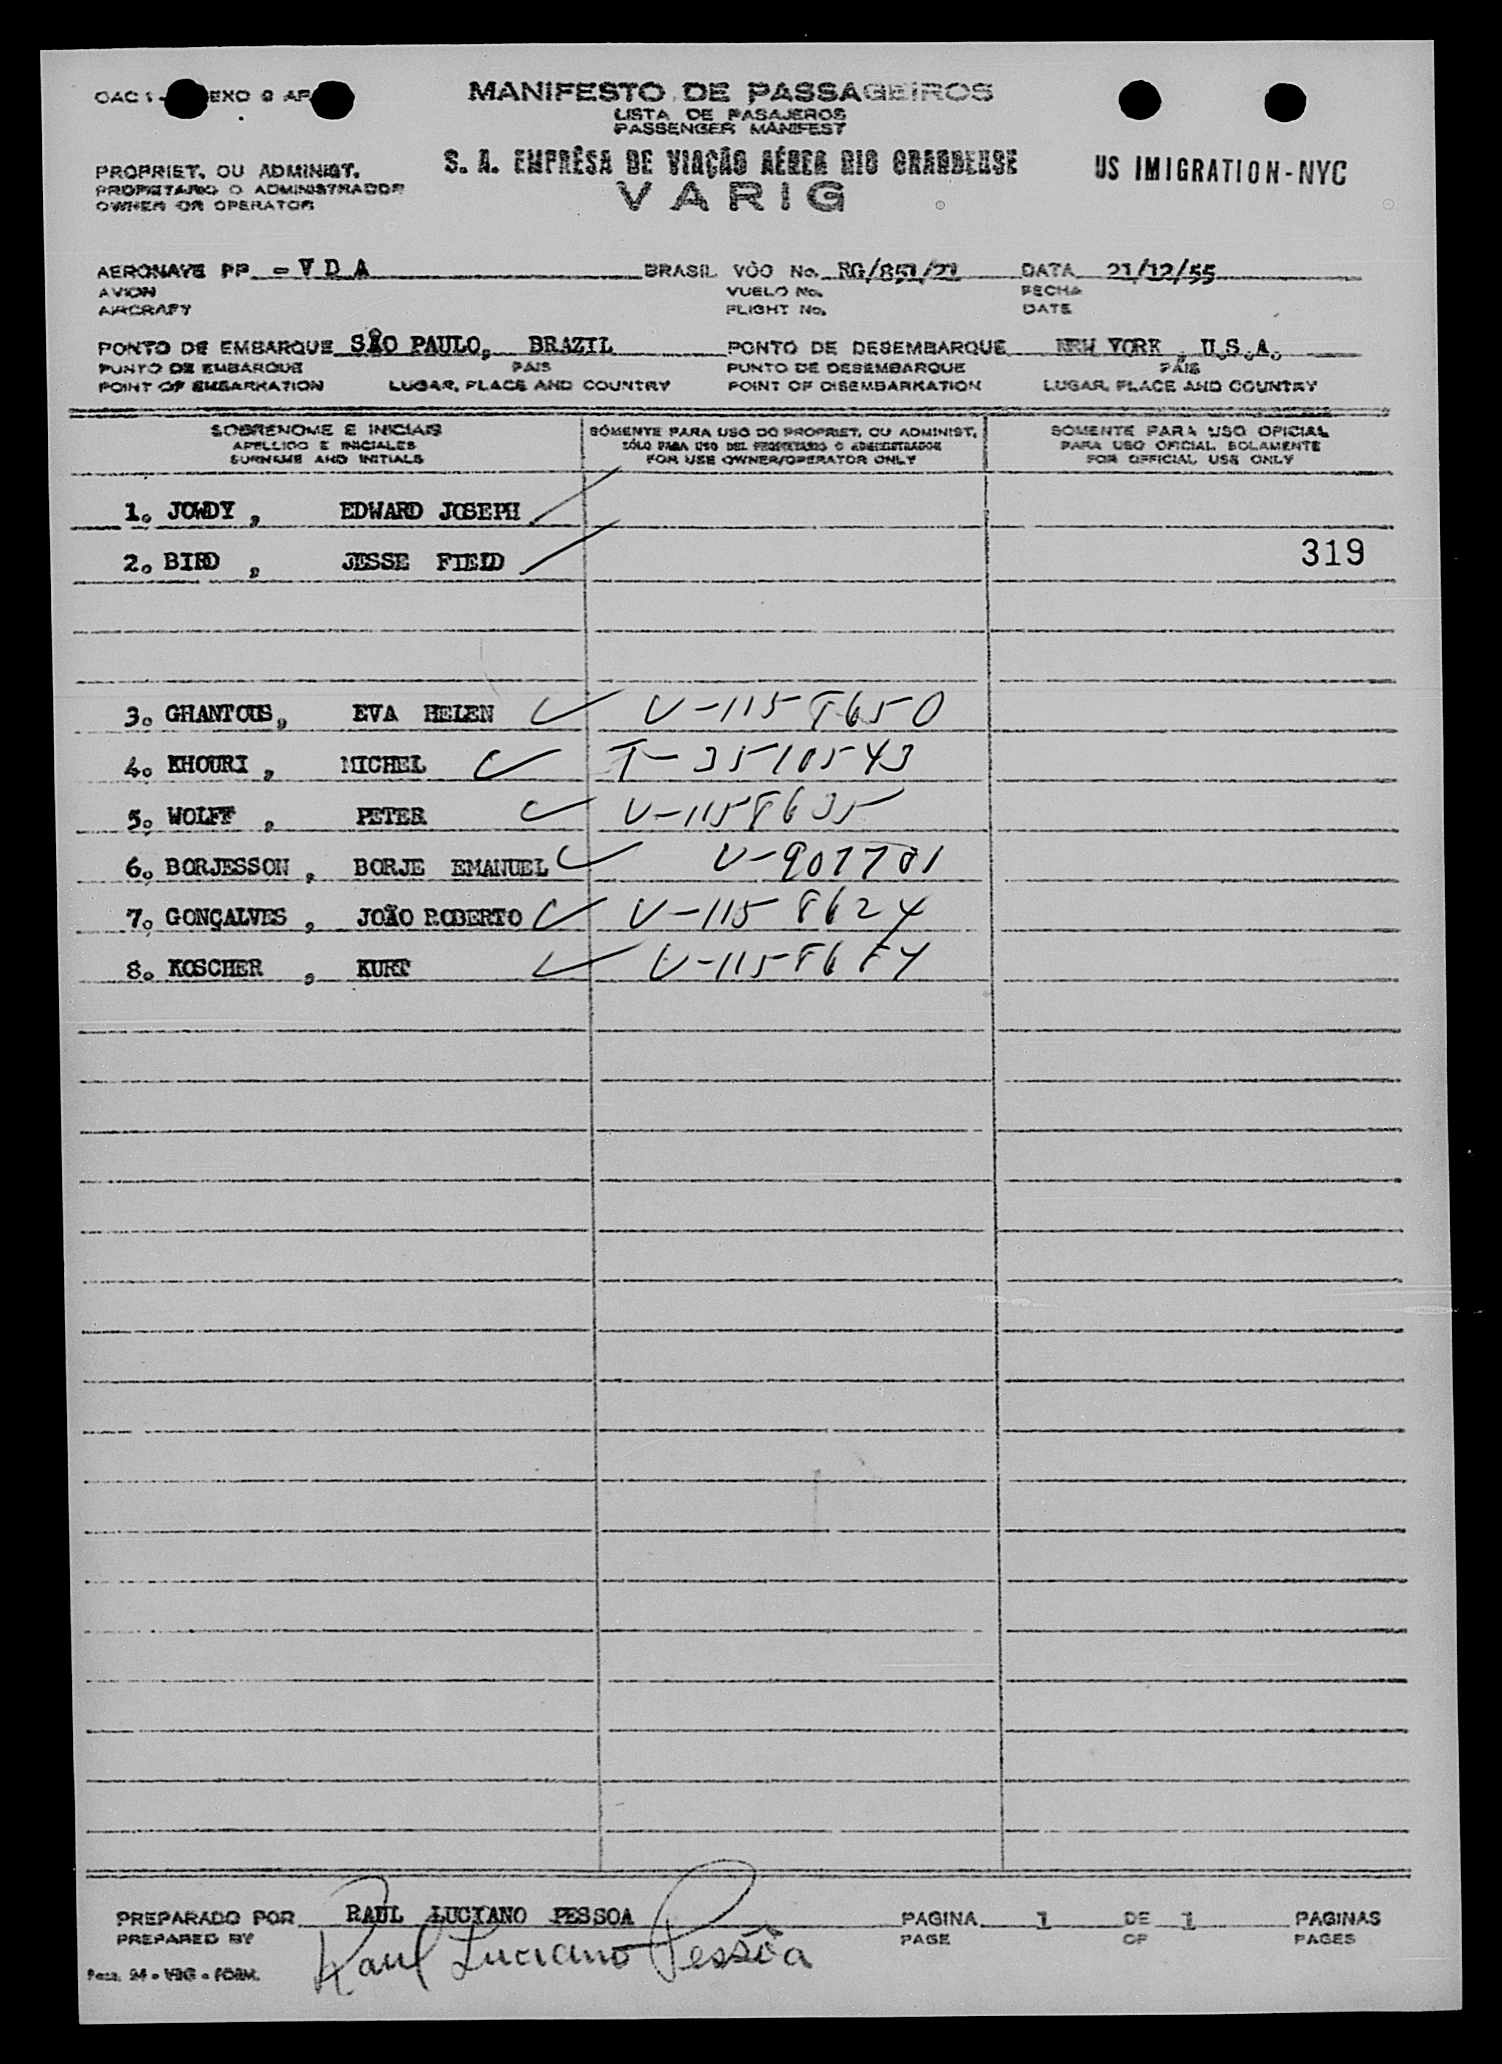 MANIFESTO DE PASSAGEIROS
LISTA DE PASAJEROS
PASSENGER MANIFEST
PROPRIET. OU ADMINIST.
PROPIETARIO O ADMINISTRADOR
OWNER OR OPERATOR
S. A. EMPRÊSA DE VIAÇÃO AÉREA RIO GRANDENSE
VARIG
US IMIGRATION-NYC
AERONAVE PP - V D A BRASIL VÔO No. RG/851/21 DATA 21/12/55
AVION VUELO No. FECHA
AIRCRAFT FLIGHT No. DATE
PONTO DE EMBARQUE SÃO PAULO, BRAZIL PONTO DE DESEMBARQUE NEW YORK, U.S.A.
PUNTO DE EMBARQUE PAIS PUNTO DE DESEMBARQUE PAÍS
POINT OF EMBARKATION LUGAR, PLACE AND COUNTRY POINT OF DISEMBARKATION LUGAR, PLACE AND COUNTRY
SOBRENOME E INICIAIS SÓMENTE PARA USO DO PROPRIET. OU ADMINIST. SOMENTE PARA USO OFICIAL
APELLIDO E INICIALES SÓLO PARA USO DEL PROPIETARIO O ADMINISTRADOR PARA USO OFICIAL SOLAMENTE
SURNAME AND INITIALS FOR USE OWNER/OPERATOR ONLY FOR OFFICIAL USE ONLY
1. JOWDY, EDWARD JOSEPH
2. BIRD, JESSE FIELD 319
3. GHANTOUS, EVA HELEN V-1158650
4. KHOURI, MICHEL T-3510543
5. WOLFF, PETER V-1158635
6. BORJESSON, BORJE EMANUEL V-907701
7. GONÇALVES, JOÃO ROBERTO V-1158624
8. KOSCHER, KURT
PREPARADO POR RAUL LUCIANO PESSOA PAGINA 1 DE 1 PAGINAS
PREPARED BY Raul Luciano Pessôa PAGE OF PAGES